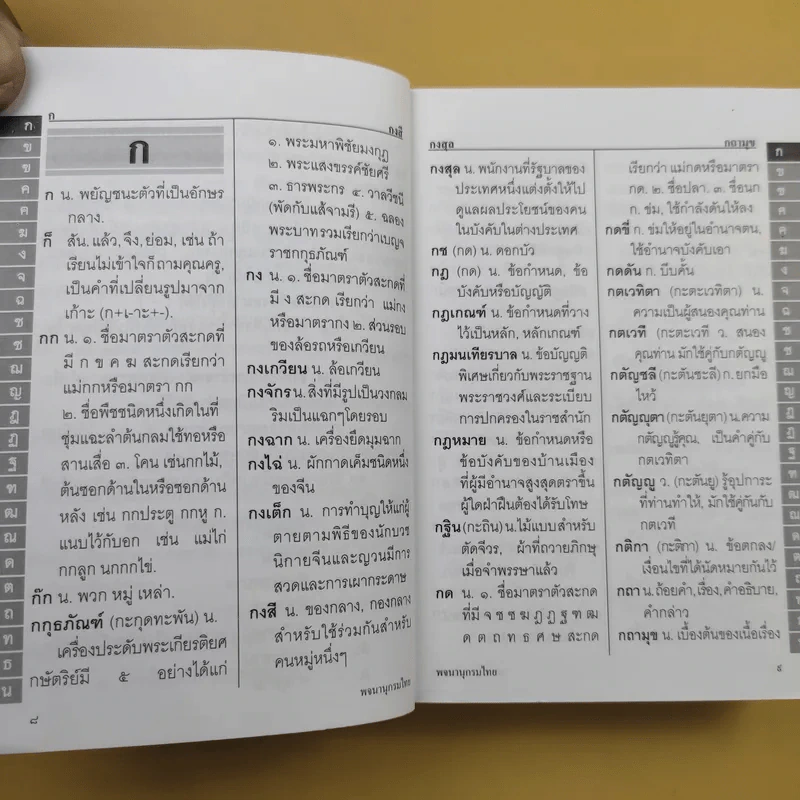 ก
กงสี
ก
ก น. พยัญชนะตัวที่เป็นอักษร
กลาง.
ก็ สัน. แล้ว, จึง, ย่อม, เช่น ถ้า
เรียนไม่เข้าใจก็ถามคุณครู,
เป็นคำที่เปลี่ยนรูปมาจาก
เก้าะ (ก+เ-าะ+-้).
กก น. ๑. ชื่อมาตราตัวสะกดที่
มี ก ข ค ฆ สะกดเรียกว่า
แม่กกหรือมาตรา กก
๒. ชื่อพืชชนิดหนึ่งเกิดในที่
ชุ่มแฉะลำต้นกลมใช้ทอหรือ
สานเสื่อ ๓. โคน เช่นกกไม้,
ต้นซอกด้านในหรือซอกด้าน
หลัง เช่น กกประตู กกหู ก.
แนบไว้กับอก เช่น แม่ไก่
กกลูก นกกกไข่.
ก๊ก น. พวก หมู่ เหล่า.
กกุธภัณฑ์ (กะกุดทะพัน) น.
เครื่องประดับพระเกียรติยศ
กษัตริย์มี ๕ อย่างได้แก่
๑. พระมหาพิชัยมงกุฎ
๒. พระแสงขรรค์ชัยศรี
๓. ธารพระกร ๔. วาลวีชนี
(พัดกับแส้จามรี) ๕. ฉลอง
พระบาทรวมเรียกว่าเบญจ
ราชกกุธภัณฑ์
กง น. ๑. ชื่อมาตราตัวสะกดที่
มี ง สะกด เรียกว่า แม่กง
หรือมาตรากง ๒. ส่วนรอบ
ของล้อรถหรือเกวียน
กงเกวียน น. ล้อเกวียน
กงจักร น. สิ่งที่มีรูปเป็นวงกลม
ริมเป็นแฉกๆโดยรอบ
กงฉาก น. เครื่องยืดมุมฉาก
กงไฉ่ น. ผักกาดเค็มชนิดหนึ่ง
ของจีน
กงเต็ก น. การทำบุญให้แก่ผู้
ตายตามพิธีของนักบวช
นิกายจีนและญวนมีการ
สวดและการเผากระดาษ
กงสี น. ของกลาง, กองกลาง
สำหรับใช้ร่วมกันสำหรับ
คนหมู่หนึ่งๆ
พจนานุกรมไทย
๘
ก
ข
ฃ
ค
ฅ
ฆ
ง
จ
ฉ
ช
ซ
ฌ
ญ
ฎ
ฏ
ฐ
ฑ
ฒ
ณ
ด
ต
ถ
ท
ธ
น
กงสุล
กถามุข
กงสุล น. พนักงานที่รัฐบาลของ
ประเทศหนึ่งแต่งตั้งให้ไป
ดูแลผลประโยชน์ของคน
ในบังคับในต่างประเทศ
กช (กด) น. ดอกบัว
กฎ (กด) น. ข้อกำหนด, ข้อ
บังคับหรือบัญญัติ
กฎเกณฑ์ น. ข้อกำหนดที่วาง
ไว้เป็นหลัก, หลักเกณฑ์
กฎมนเทียรบาล น. ข้อบัญญัติ
พิเศษเกี่ยวกับพระราชฐาน
พระราชวงศ์และระเบียบ
การปกครองในราชสำนัก
กฎหมาย น. ข้อกำหนดหรือ
ข้อบังคับของบ้านเมือง
ที่ผู้มีอำนาจสูงสุดตราขึ้น
ผู้ใดฝ่าฝืนต้องได้รับโทษ
กฐิน (กะถิน) น.ไม้แบบสำหรับ
ตัดจีวร, ผ้าที่ถวายภิกษุ
เมื่อจำพรรษาแล้ว
กด น. ๑. ชื่อมาตราตัวสะกด
ที่มี จ ช ซ ฎ ฏ ฐ ฑ ฒ
ด ต ถ ท ธ ศ ษ สะกด
เรียกว่า แม่กดหรือมาตรา
กด. ๒. ชื่อปลา. ๓. ชื่อนก
ก. ข่ม, ใช้กำลังดันให้ลง
กดขี่ ก. ข่มให้อยู่ในอำนาจตน,
ใช้อำนาจบังคับเอา
กดดัน ก. บีบคั้น
กตเวทิตา (กะตะเวทิตา) น.
ความเป็นผู้สนองคุณท่าน
กตเวที (กะตะเวที ว. สนอง
คุณท่าน มักใช้คู่กับกตัญญู
กตัญชลี (กะตันชะลี) ก. ยกมือ
ไหว้
กตัญญุตา (กะตันยุตา) น.ความ
กตัญญูรู้คุณ, เป็นคำคู่กับ
กตเวทิตา
กตัญญู ว. (กะตันยู) รู้อุปการะ
ที่ท่านทำให้, มักใช้คู่กันกับ
กตเวที
กติกา (กะติกา) น. ข้อตกลง/
เงื่อนไขที่ได้นัดหมายกันไว้
กถา น. ถ้อยคำ, เรื่อง, คำอธิบาย,
คำกล่าว
กถามุข น. เบื้องต้นของเนื้อเรื่อง
พจนานุกรมไทย
๙